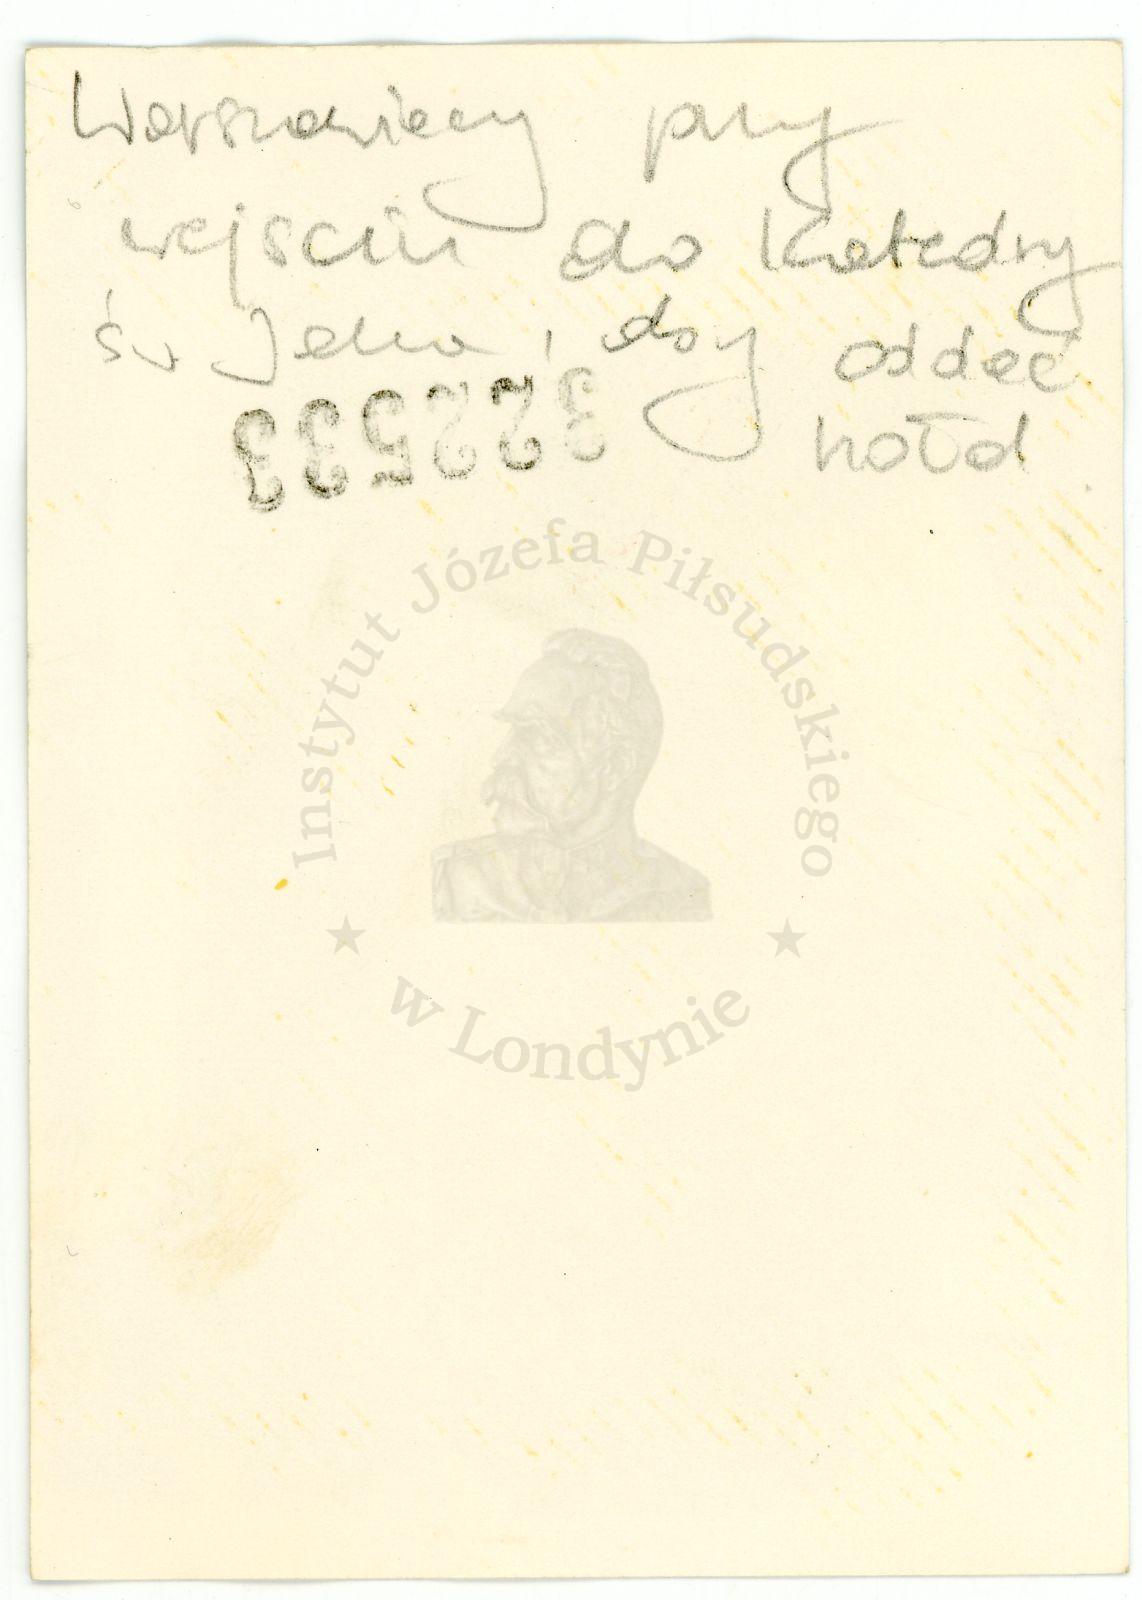 Warszawiacy przy
wejściu do Katedry
św Jana, aby oddać
hołd
322533
Instytut Józefa Piłsudskiego
w Londynie